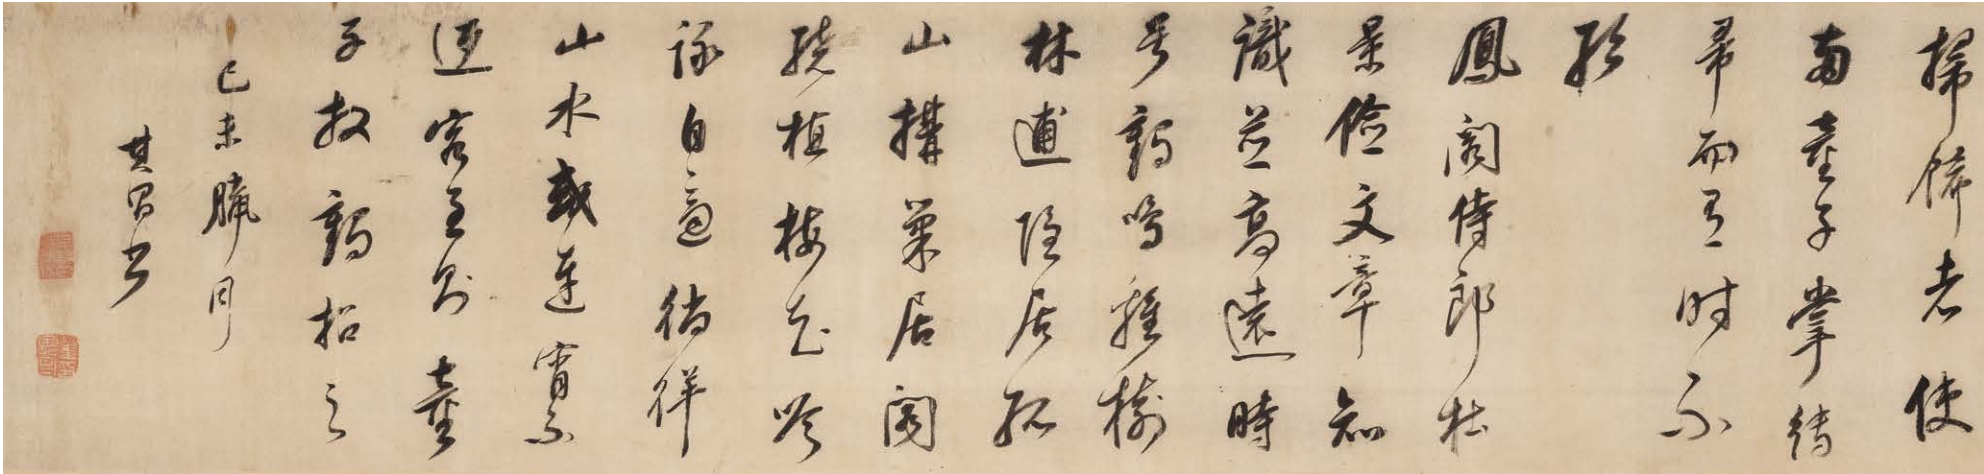 掃飾老使
南臺子掌待
帚而 时不
鳳閣侍郎杜
景儉文章知
識並高遠時
号鶴鳴雞樹
林逋隱居孤
山搆巢居閣
繞植梅花吟
詠自適徜徉
山水或連宵不
返客至則童
子放鶴招之
己未臘月
其昌书